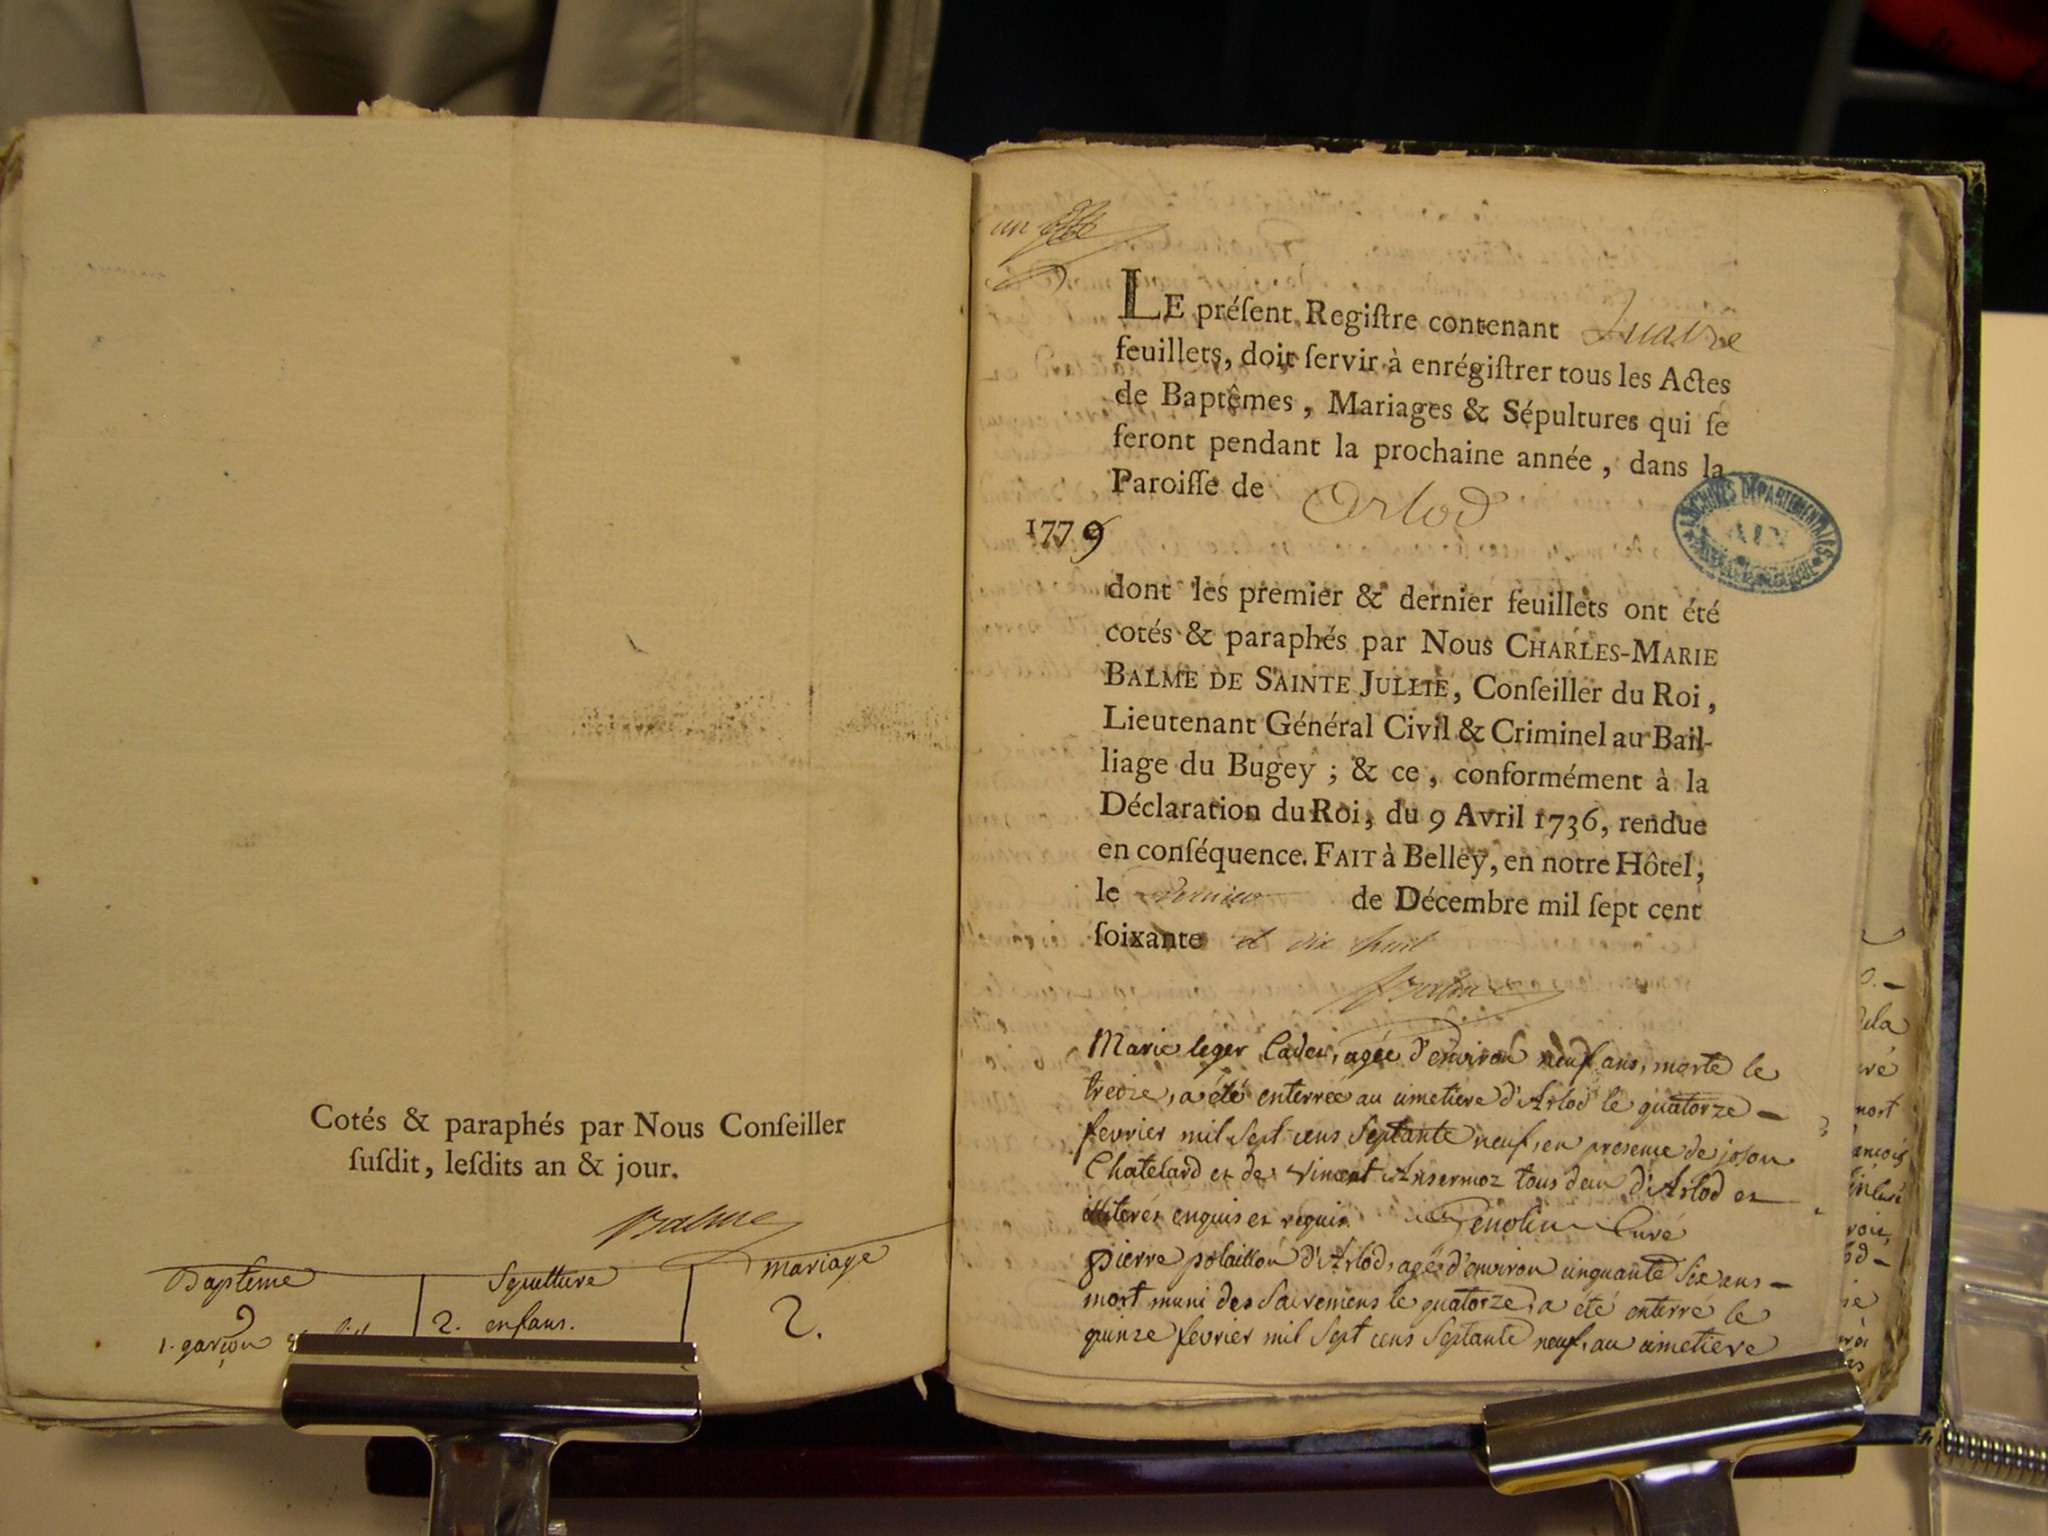 Cotés & paraphés par Nous Conſeiller
ſuſdit, leſdits an & jour.
Balme
Bapteme
Sepulture
mariage
2
2. enfans.
2.
1. garçon
un
LE préſent Regiſtre contenant Quatre
feuillets, doit ſervir à enrégiſtrer tous les Actes
de Baptêmes, Mariages & Sépultures qui ſe
feront pendant la prochaine année, dans la
Paroiſſe de Arlod
1779
ARCHIVES DÉPARTEMENTALES
AIN
dont les premier & dernier feuillets ont été
cotés & paraphés par Nous CHARLES-MARIE
BALME DE SAINTE JULLIE, Conſeiller du Roi,
Lieutenant Général Civil & Criminel au Bail-
liage du Bugey; & ce, conformément à la
Déclaration du Roi, du 9 Avril 1736, rendue
en conſéquence. FAIT à Belley, en notre Hôtel;
le premier de Décembre mil ſept cent
ſoixante et dix huit
Balme
Marie leger Cadet, agée d'environ neuf ans, morte le
treize, a été enterrée au cimetiere d'Arlod le quatorze
fevrier mil sept cens septante neuf, en presence de
Chatelard et de vincent Ansermoz tous deux d'Arlod et
illiterés enquis et requis. Genolin Curé
pierre polaillon d'Arlod, agé d'environ cinquante six ans
mort muni des sacremens le quatorze, a été enterré le
quinze fevrier mil sept cens septante neuf, au cimetiere